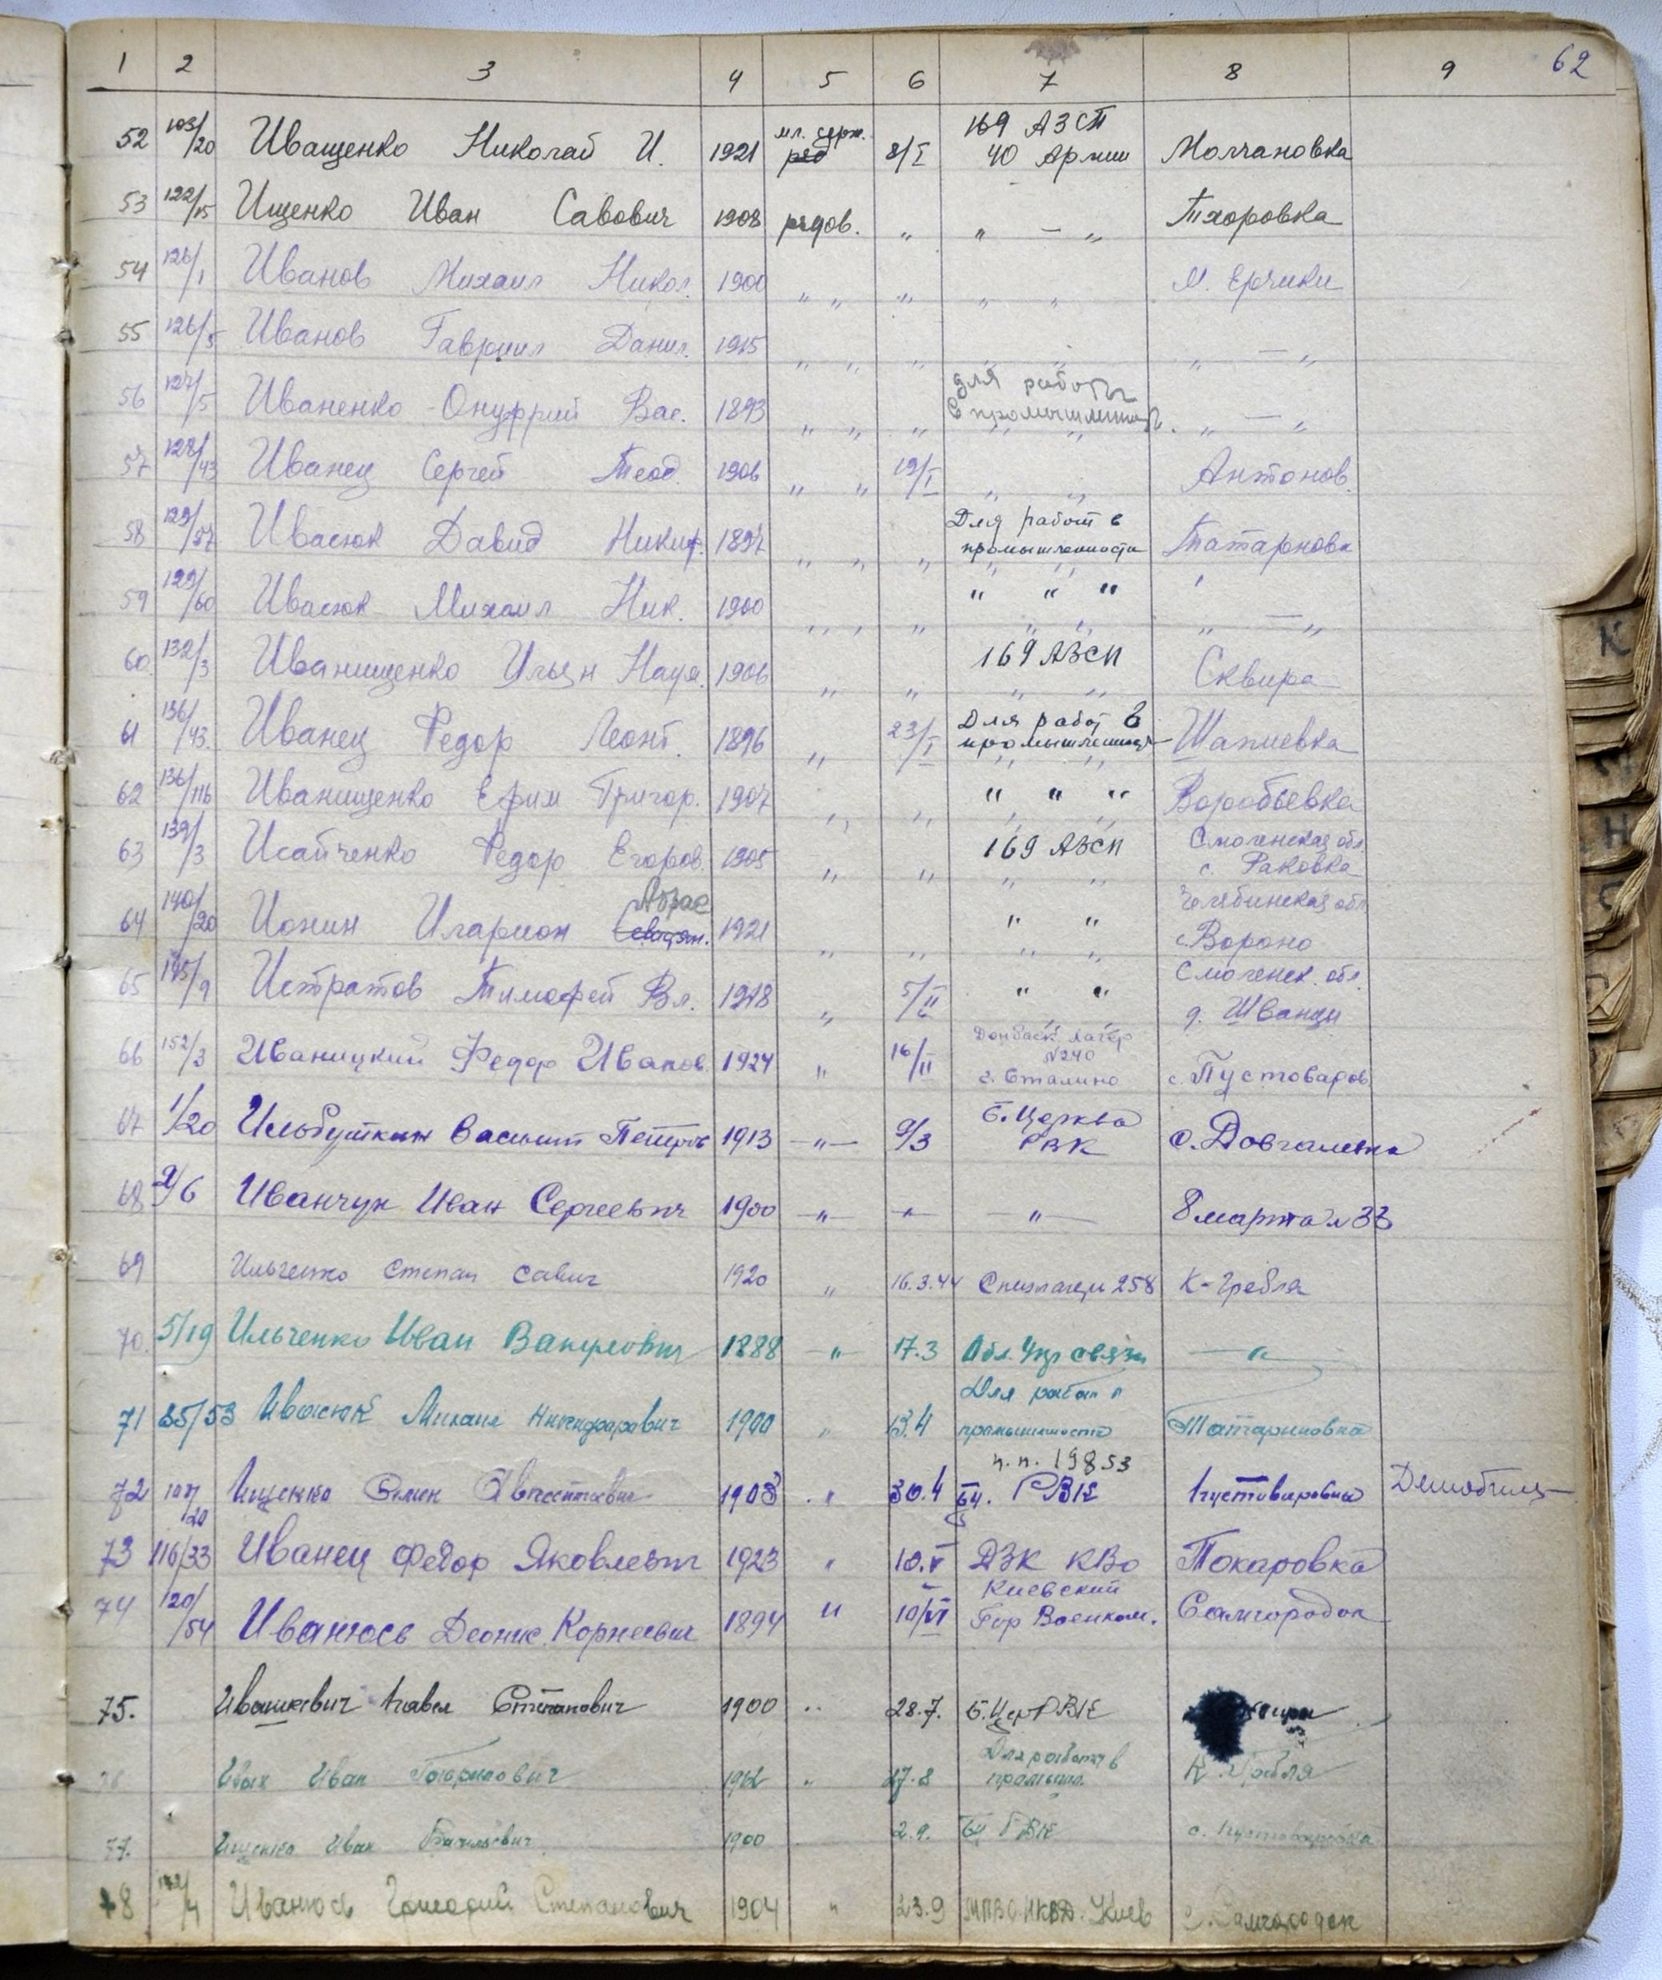 1 2 3 4 5 6 7 8 9 62
52 103/20 Иващенко Николай И. 1921 мл. серж. ряд 8/I 169 АЗСП 40 Армии Молчановка
53 122/15 Ищенко Иван Савович 1908 рядов. „ „ — „ Тхоровка
54 126/1 Иванов Михаил Никол. 1900 „ „ „ „ „ М. Ерчики
55 126/5 Иванов Гавриил Данил. 1915 „ „ „ „ „ „ — „
56 127/5 Иваненко Онуфрий Вас. 1893 „ „ „ для работы в промышленност. „ — „
57 128/43 Иванец Сергей Теод. 1906 „ „ 19/I „ „ Антонов.
58 129/57 Ивасюк Давид Никиф. 1897 „ „ „ Для работ в промышленности Татарнова
59 129/60 Ивасюк Михаил Ник. 1900 „ „ „ " " " „ — „
60 132/3 Иванищенко Ульян Наум. 1906 „ „ 169 АЗСП Сквира
61 136/43 Иванец Федор Леонт. 1896 „ 23/I Для работ в промышленност Шапиевка
62 136/116 Иванищенко Ефим Григор. 1907 „ „ " " " Воробьевка
63 139/3 Исайченко Федор Егоров. 1905 „ „ 169 АЗСП Смоленская обл. с. Раковка
64 140/20 Ионин Иларион Абрас 1921 „ „ " " Челябинская обл. с. Вороно
65 145/9 Истратов Тимофей Вл. 1918 „ 5/II " " Смоленск. обл. д. Шванци
66 152/3 Иваницкий Федор Иванов. 1924 „ 16/II Донбасс Лагер №240 г. Сталино с. Пустоваров.
67 1/20 Ильбуткин Василит Петров 1913 —"— 9/3 Б. Церква РВК с. Довгалевка
68 2/6 Иванчук Иван Сергеевич 1900 —"— —"— —"— 8 марта №33
69 Ильченко Степан Савич 1920 „ 16.3.44 Спецлагерь 258 К-Гребля
70. 5/19 Ильченко Иван Вакулович 1888 —"— 17.3 Обл. Упр связи —"—
71 85/53 Ивасюк Михаил Никифорович 1900 „ 13.4 Для работ в промышлености Татариновка
72 107/20 Ищенко Семен 1903 „ 30.4 БЦ. РВК п.п. 19853 Пустоваровка
73 116/33 Иванец Федор Яковлевич 1923 „ 10.V ДЗК КВО Токаровка
74 120/54 Иванюсь Деонис Корнеевич 1894 " 10/VI Киевский Гор Военком. Самгородок
75. Ивашкевич Павел Степанович 1900 „ 28.7. Б. Цер РВК
76 Иван „ 27.8 Для работы в промышл. К. Гребля
77. Ищенко Иван Васильевич 1900 2.9. БЦ РВК с. Пустоваровка
78 Иванюсь Григорий Степанович 1904 „ 23.9 МПВО НКВД. Киев с. Самгородок
К
Н